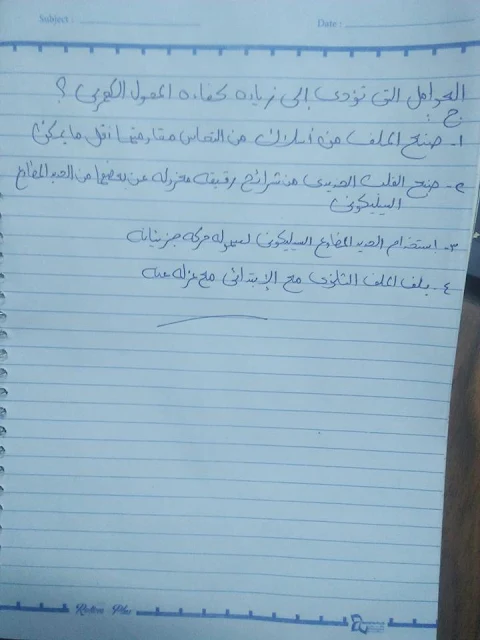 Subject :
Date :
العوامل التى تؤدى إلى زياده كفاءه المحول الكهربى ؟
ج :
١- صنع الملف من أسلاك من النحاس مقاومتها أقل ما يمكن
٢- صنع القلب الحديدى من شرائح رقيقه معزوله عن بعضها من الحديد المطاوع
السيليكونى
٣- استخدام الحديد المطاوع السيليكونى لسهوله حركه جزيئاته
٤- يلف الملف الثانوى مع الإبتدائى مع عزله عنه